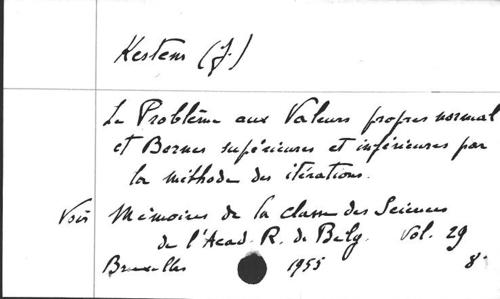 Kestens (J.)
Le Problème aux Valeurs propres normal
et Bornes supérieures et inférieures par
la méthode des itérations.
Voir Mémoires de la classe des Sciences
de l'Acad. R. de Belg. Vol. 29
Bruxelles 1955 8°